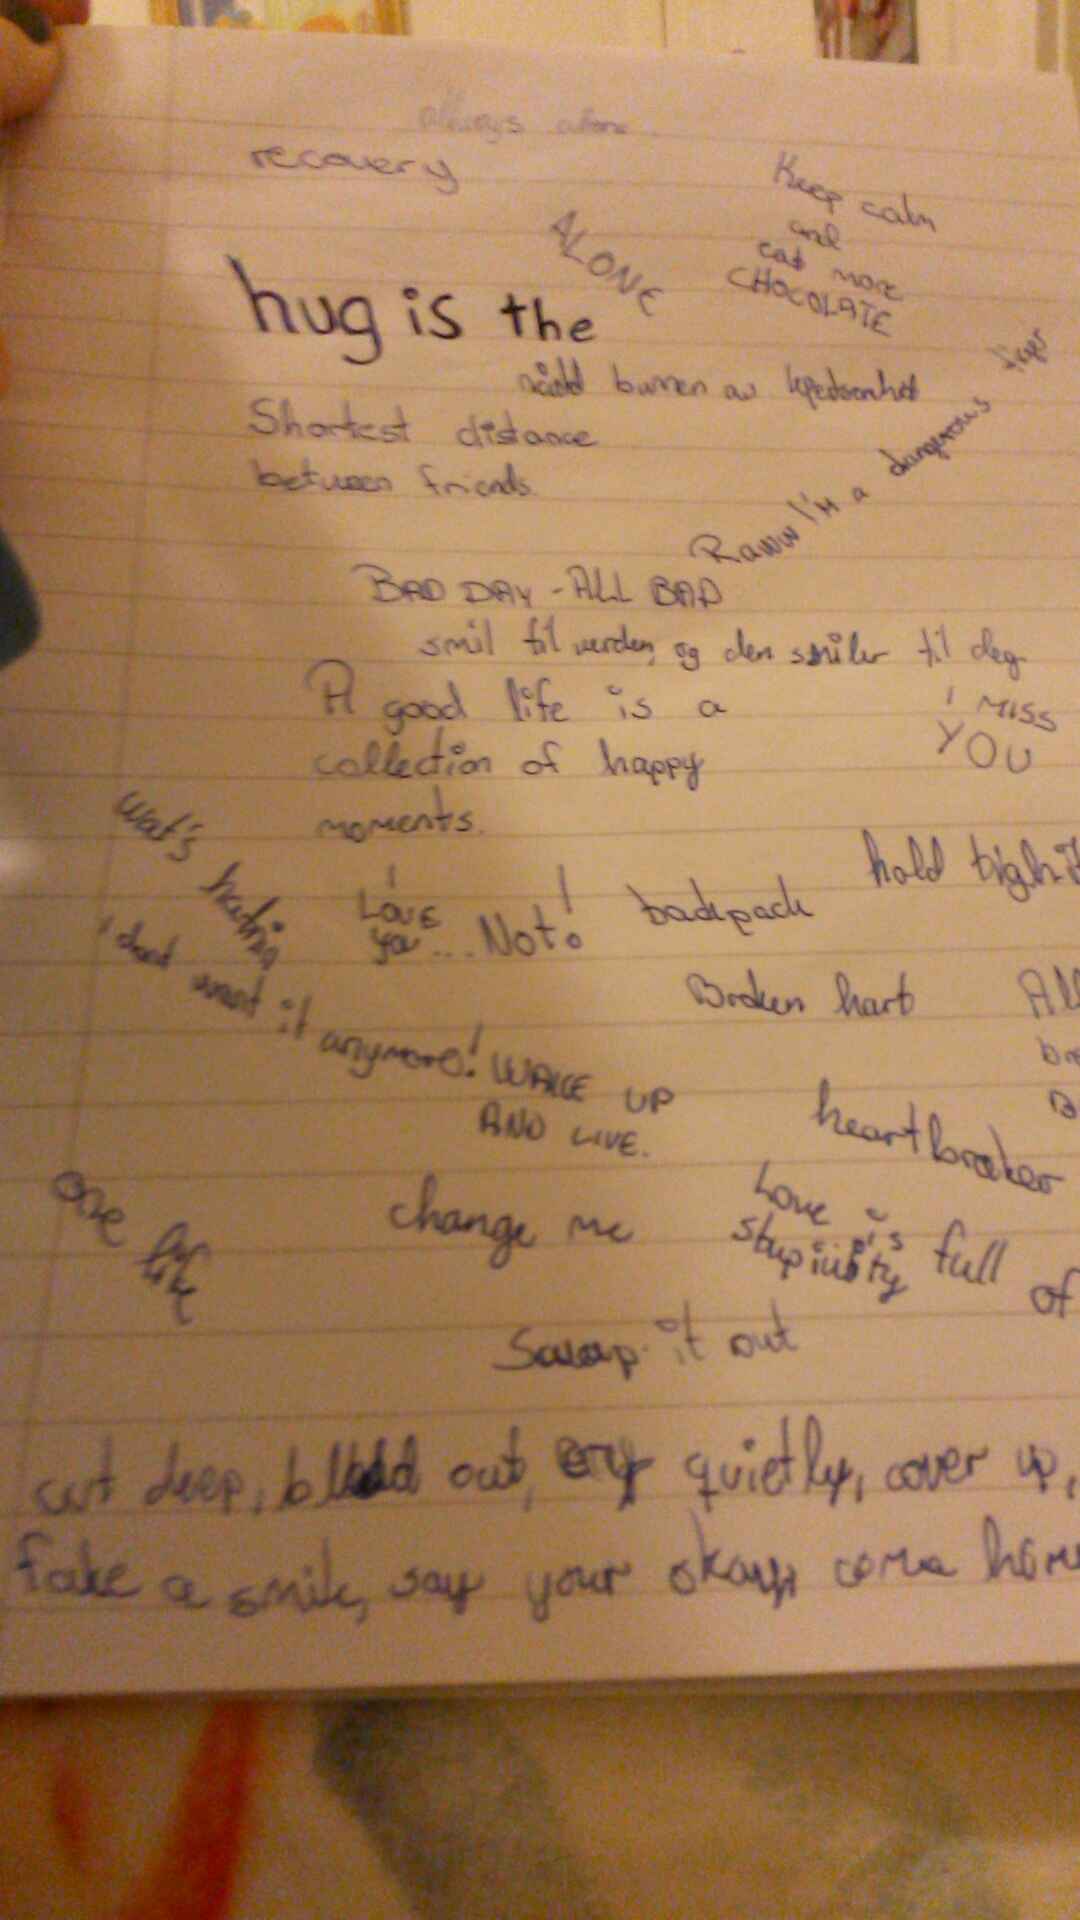 always alone
recovery
Keep calm
and
eat more
CHOCOLATE
ALONE
hug is the
av
Shortest distance
between friends.
Raww I'm a dangerous
BAD DAY - ALL BAD
smil til verden, og den smiler til deg
A good life is a
collection of happy
moments.
I MISS
YOU
wat's
I
LOVE
you... Not!
backpack
hold
i dont want it anymore!
Broken hart
All
WAKE UP
AND LIVE.
heartbreaker
one life
change me
Love is full of
stupidity
it out
cut deep, out, cry quietly, cover up,
fake a smile, say your okay, come